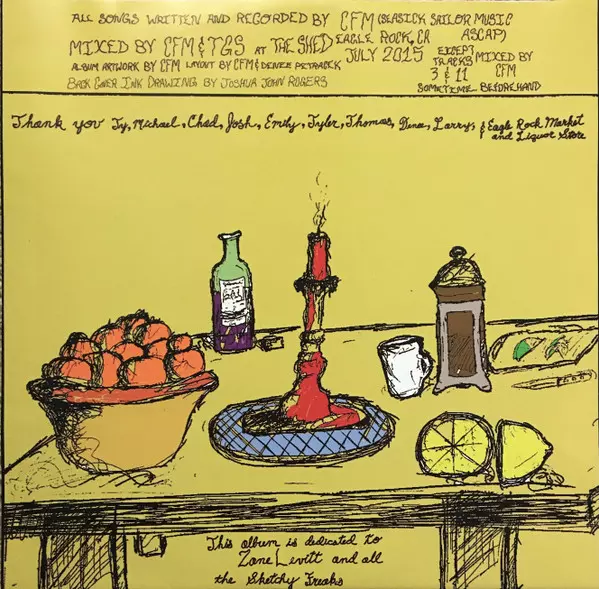 ALL SONGS WRITTEN AND RECORDED BY CFM (SEASICK SAILOR MUSIC ASCAP)
MIXED BY CFM & TGS AT THE SHED EAGLE ROCK, CA JULY 2015
EXCEPT TRACKS 3 & 11 MIXED BY CFM SOMETIME BEFOREHAND
ALBUM ARTWORK BY CFM LAYOUT BY CFM & DENEE PETRACEK
BACK COVER INK DRAWING BY JOSHUA JOHN ROGERS
Thank you Ty, Michael, Chad, Josh, Emily, Tyler, Thomas, Denee, Larry, & Eagle Rock Market
and Liquor Store
This album is dedicated to
Zane Levitt and all
the Sketchy Freaks